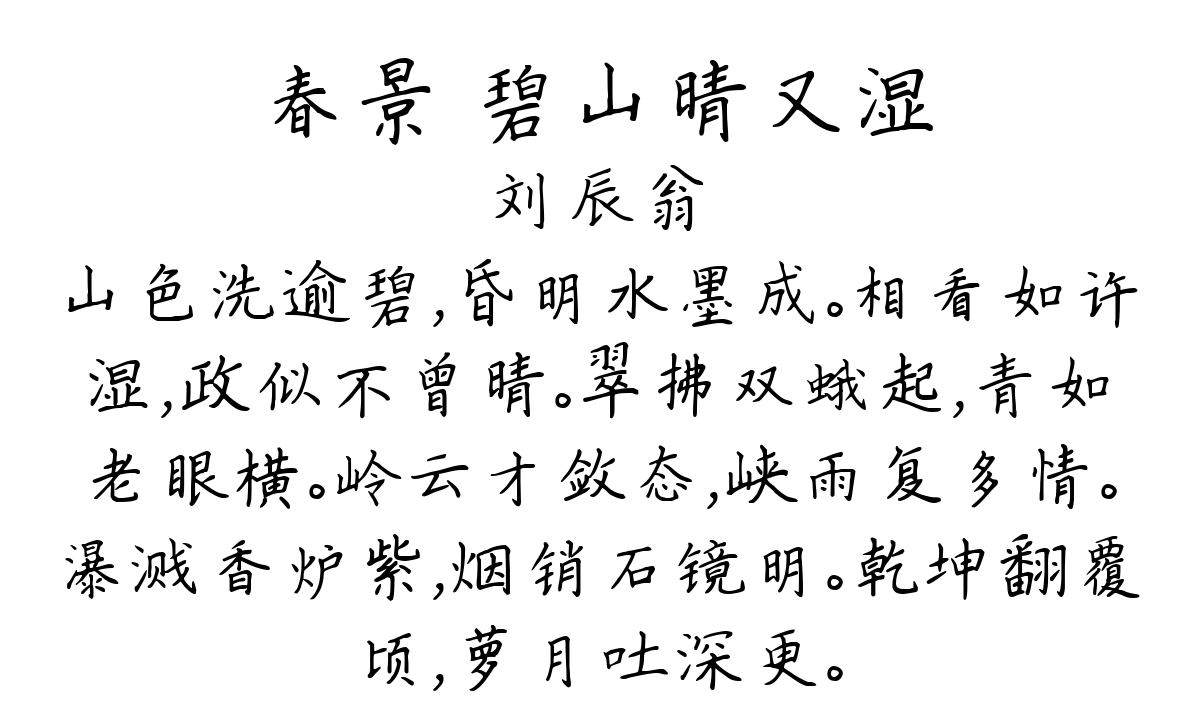 春景 碧山晴又湿
刘辰翁
山色洗逾碧,昏明水墨成。相看如许
湿,政似不曾晴。翠拂双蛾起,青如
老眼横。岭云才敛态,峡雨复多情。
瀑溅香炉紫,烟销石镜明。乾坤翻覆
顷,萝月吐深更。